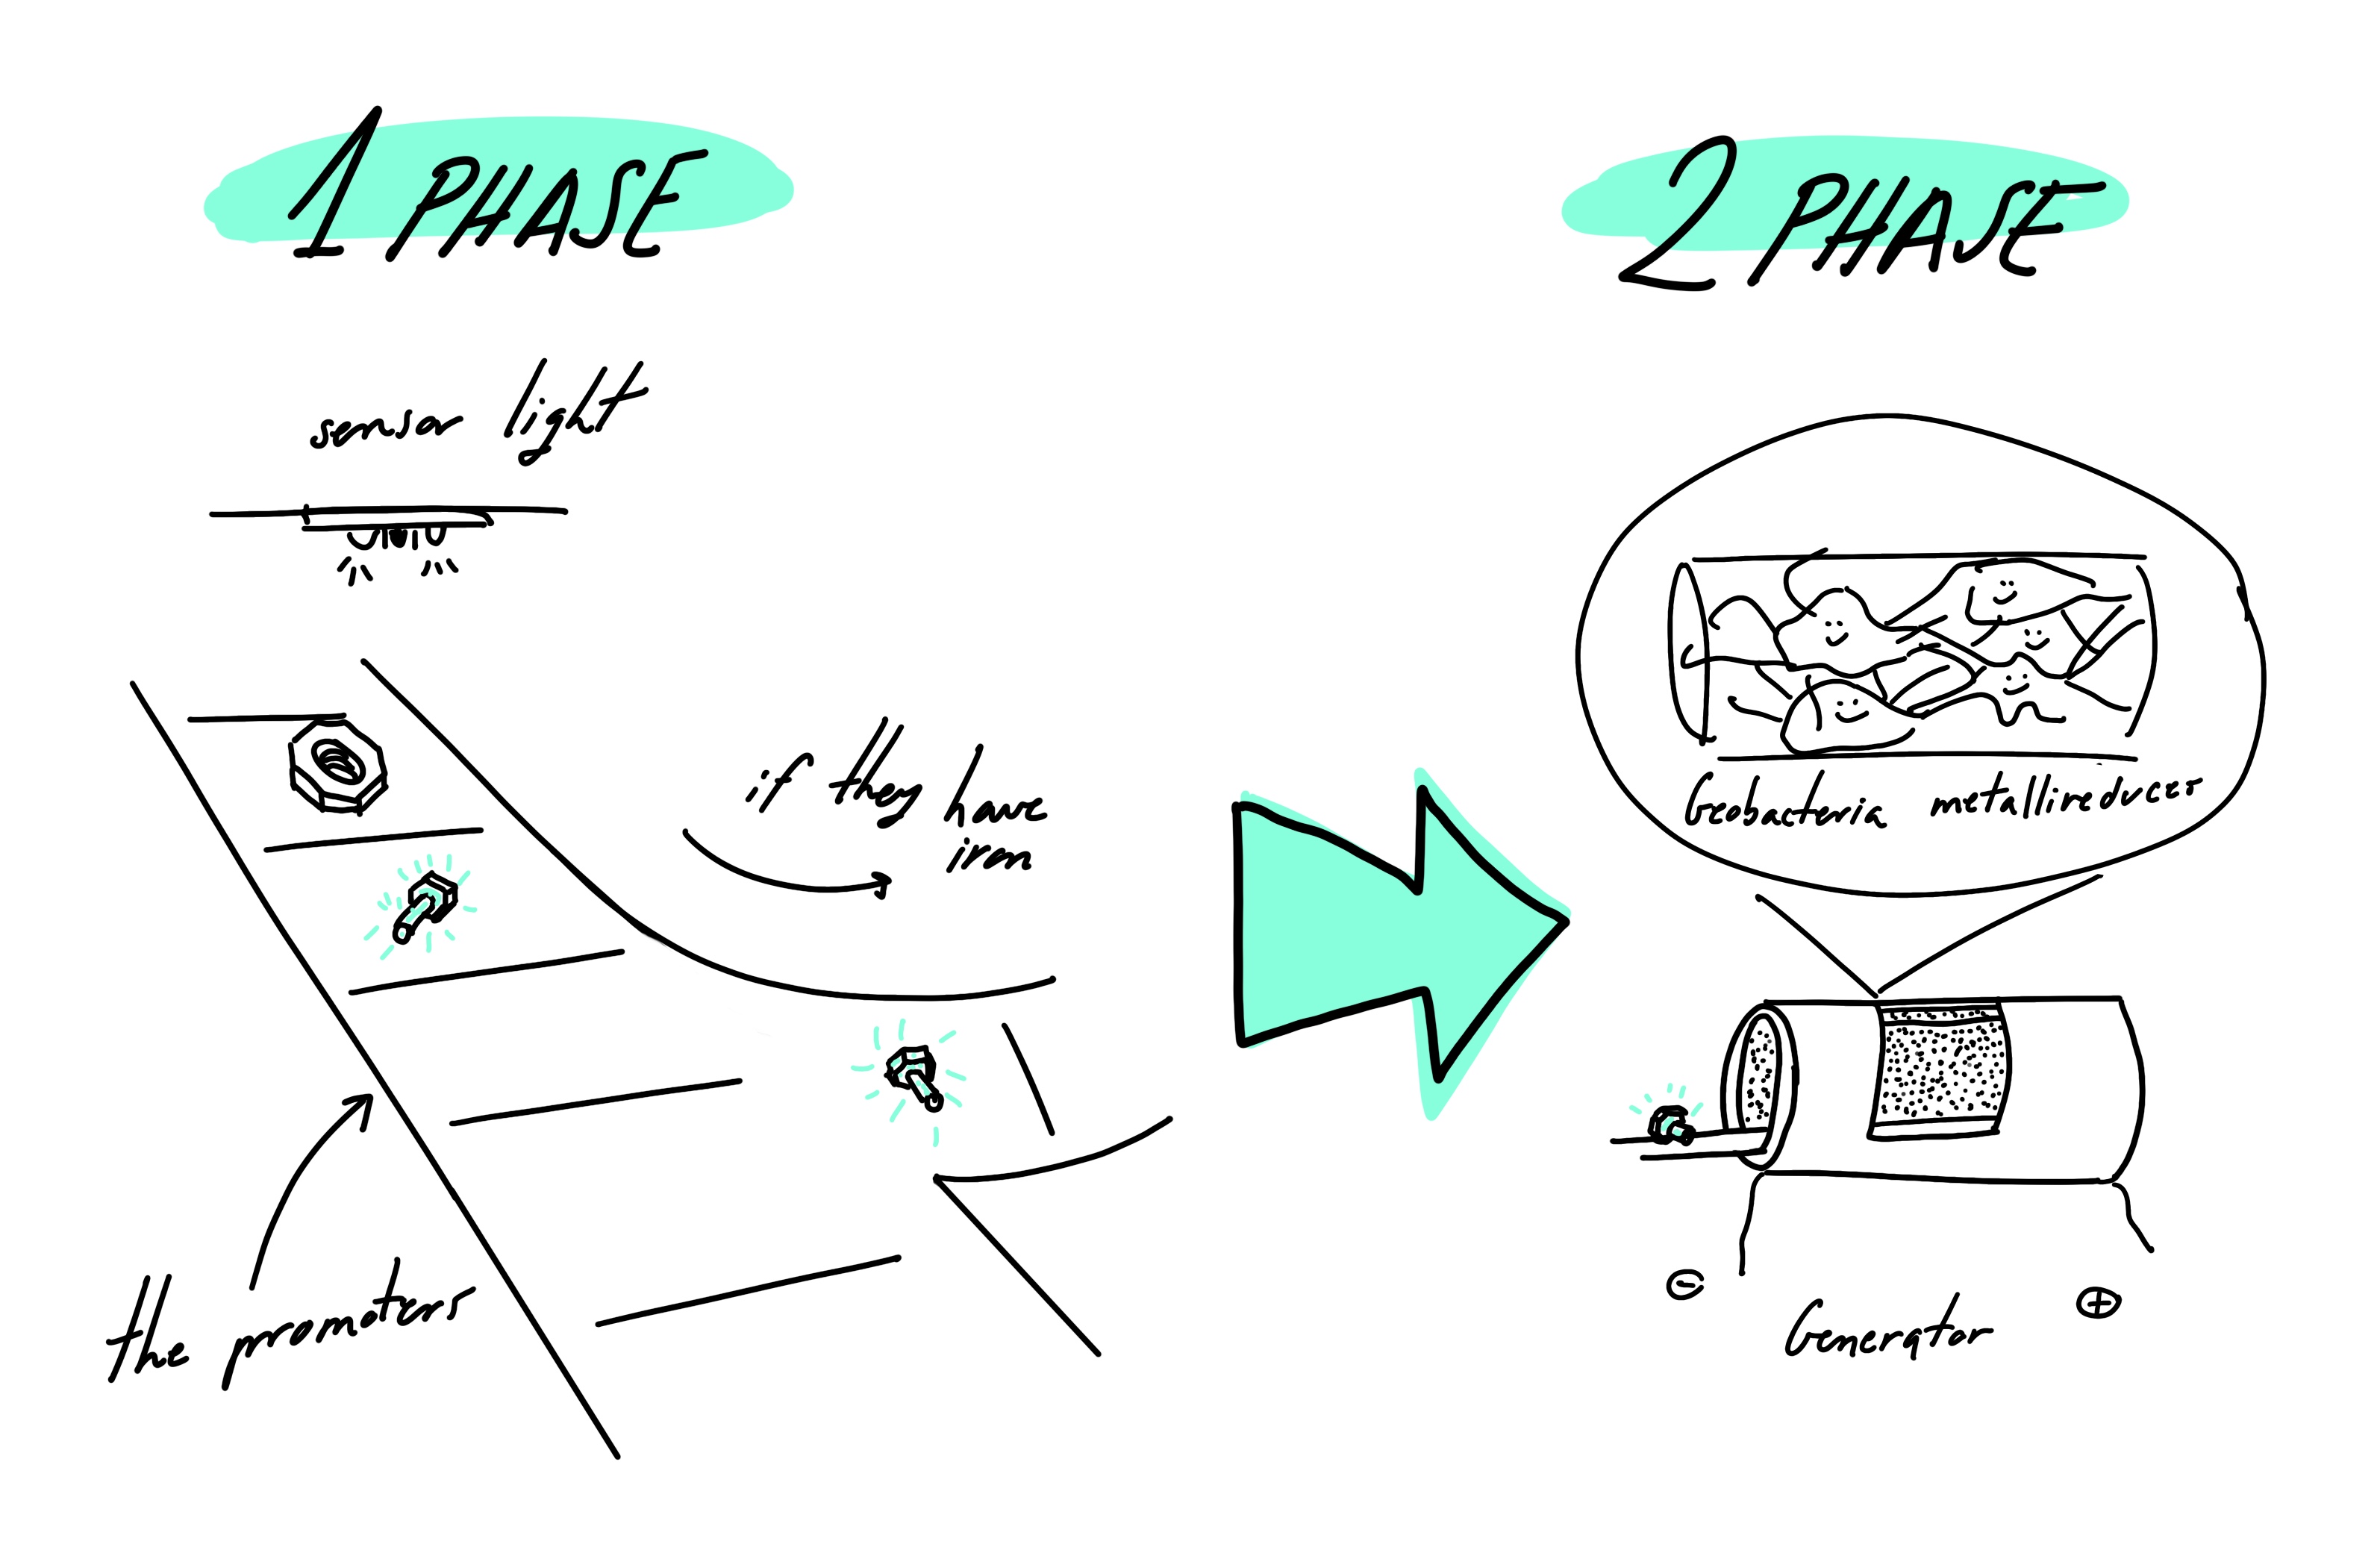 1 PHASE
2 PHASE
sensor light
if they have
iron
the promoters
Geobacteria metallireducer
⊖
⊕
Generator